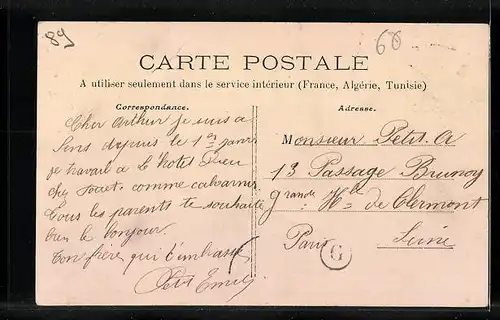 89
68
CARTE POSTALE
A utiliser seulement dans le service intérieur (France, Algérie, Tunisie)
Correspondance.
Cher Arthur je suis a
Sens depuis le 1er janv
je travail a L'hotel Dieu
chy comme
tous les parents te souhaite
bien le bonjour.
ton frère qui t'embrasse
Petit Emile
Adresse.
Monsieur Petit. A
13 Passage Brunoy
grande Hel de Clermont
Paris Seine
G